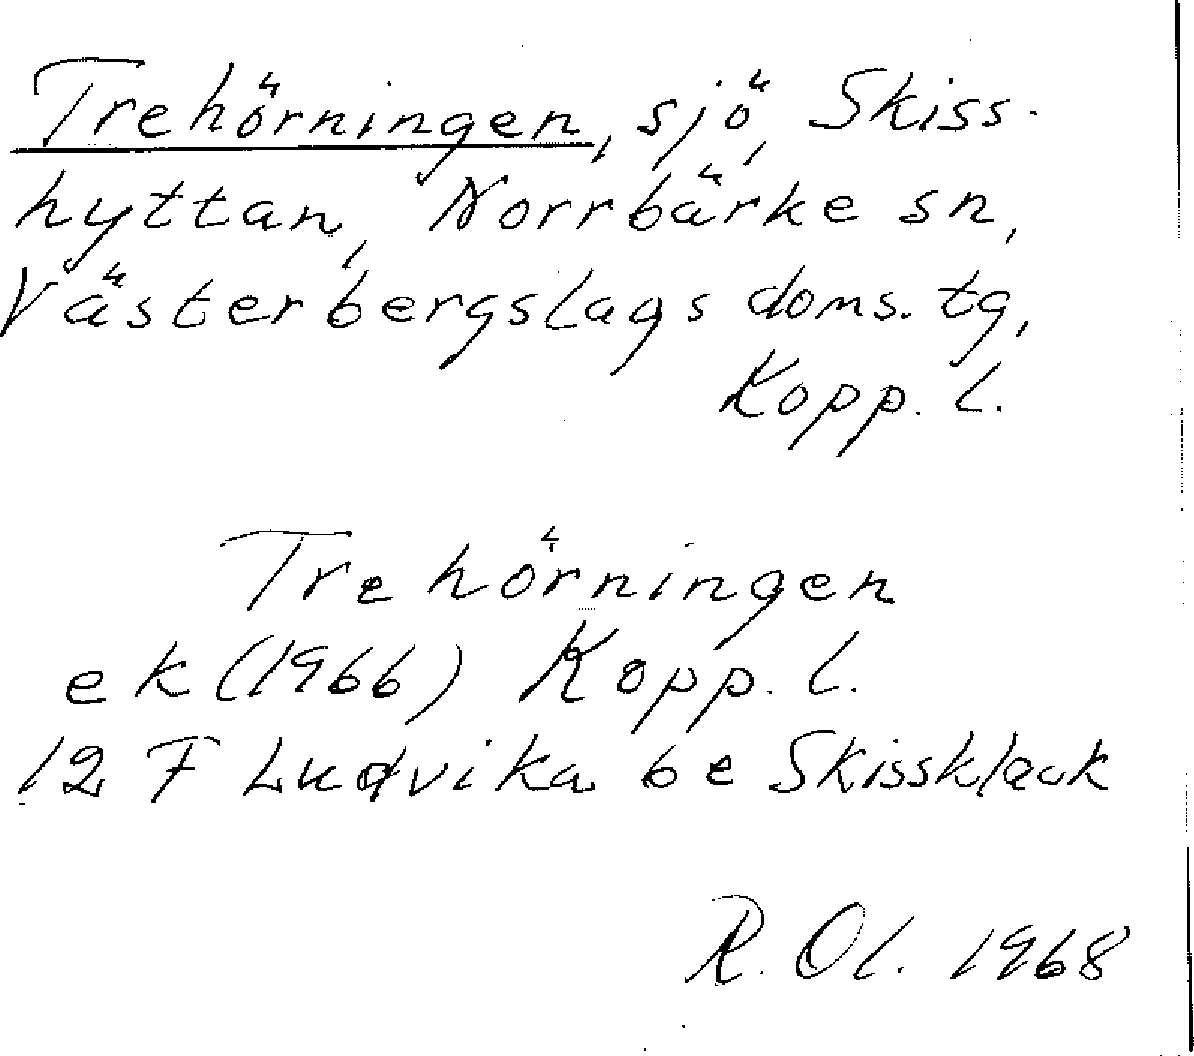 Trehörningen, sjö, Skiss-
hyttan, Norrbärke sn,
Västerbergslags doms. tg,
Kopp. l.
Trehörningen
ek (1966) Kopp. l.
12 F Ludvika 6 e Skissklack
R. Ol. 1968